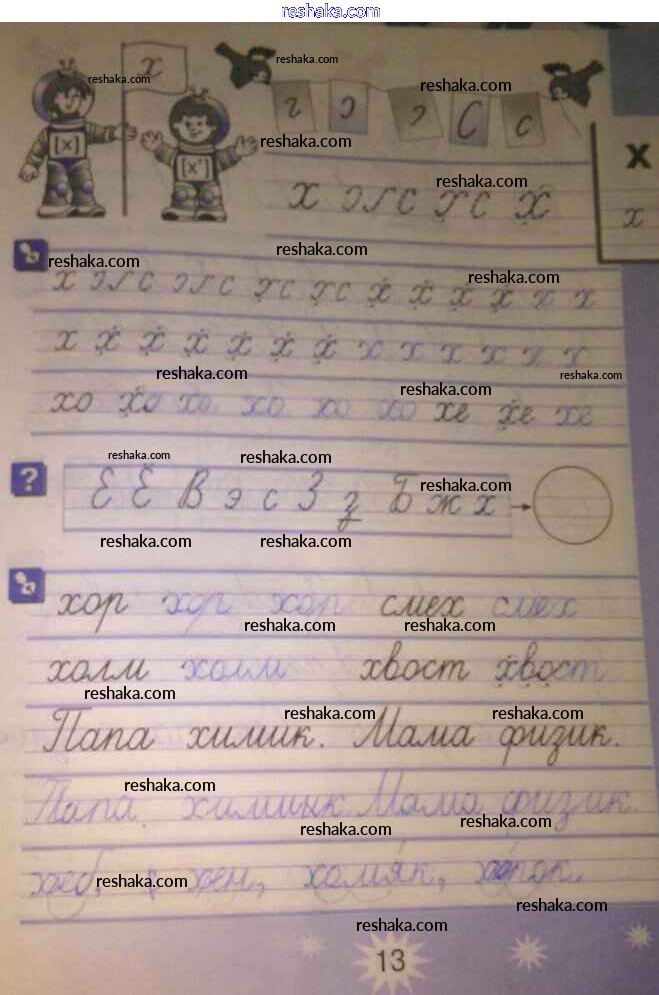 reshaka.com
х
[х] [х']
г э э С с
Х
х
х э/с х с х
х
х х х х х х х х х х х х х
хо хо хо хо хо хо хе хе хе
? Е Ё В э с З з Б ж х
хор хор хор смех смех
холм холм хвост хвост
Папа химик. Мама физик.
Папа химик Мама физик.
хомяк,
13